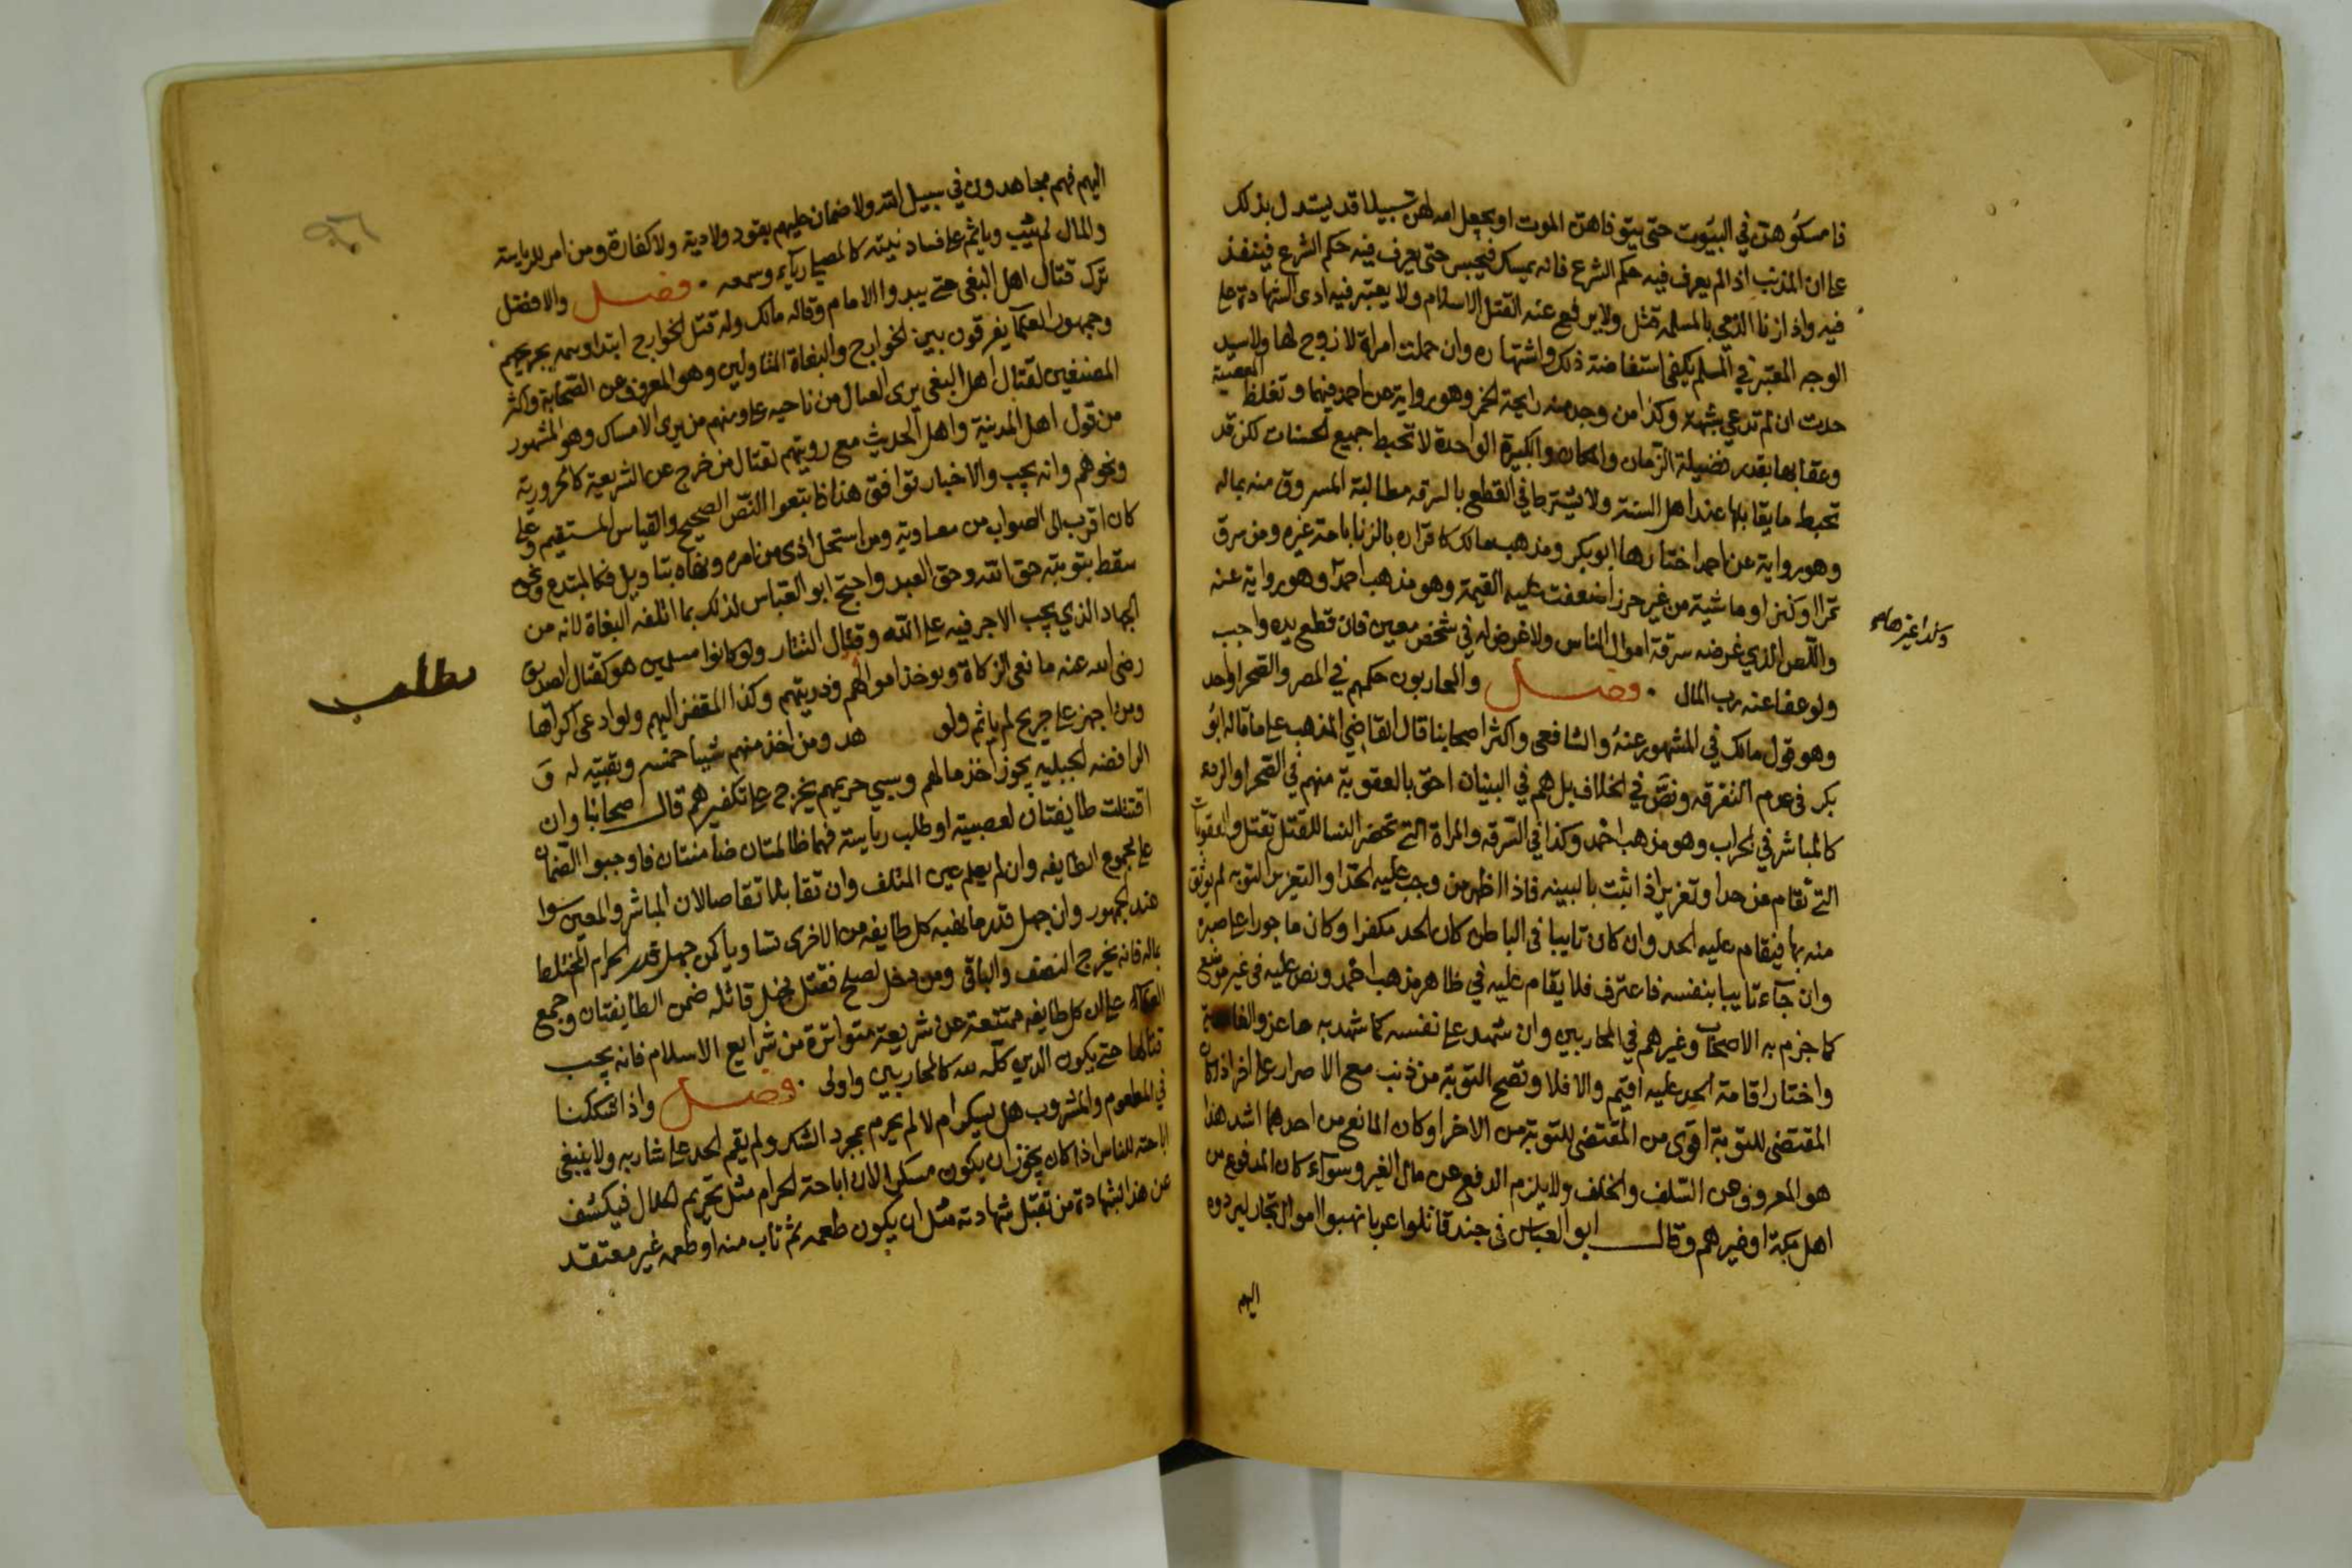 فامسكوهن في البيوت حتى يتوفاهن الموت او يجعل الله لهن سبيلا قد يستدل بذلك
على ان المذنب اذا لم يعرف فيه حكم الشرع فانه يمسك فيحبس حتى يعرف فيه حكم الشرع فينفذ
فيه واذا زنا الذمي بالمسلمه قتل ولا يرفع عنه القتل الاسلام ولا يعتبر فيه ادى الشهادة على
الوجه المعتبر في المسلم بل يكفي استفاضة ذلك واشتهاره وان حملت امراة لا زوج لها ولا سيد
حدت ان لم تدعي شبهة وكذا من وجد منه رايحة الخمر وهو رواية عن احمد فيهما وتغلظ المعصية
وعقابها بقدر فضيلة الزمان والمكان والكبيرة الواحدة لا تحبط جميع الحسنات لكن قد
تحبط ما يقابلها عند اهل السنة ولا يشترط في القطع بالسرقه مطالبة المسروق منه بماله
وهو رواية عن احمد اختارها ابو بكر ومذهب مالك كاقراره بالزنا باباحة غيره ومن سرق
تمرا او كنزا او ماشية من غير حرز اضعفت عليه القيمة وهو مذهب احمد وهو رواية عنه
وكذا غيرها
واللص الذي غرضه سرقة اموال الناس ولا غرض له في شخص معين فان قطع يده واجب
ولو عفا عنه رب المال . فصل والمحاربون حكمهم في المصر والصحرا واحد
وهو قول مالك في المشهور عنه والشافعي واكثر اصحابنا قال القاضي المذهب على ما قاله ابو
بكر في عدم التفرقه ونص في الخلاف بل هم في البنيان احق بالعقوبة منهم في الصحرا والردء
كالمباشر في الحراب وهو مذهب احمد وكذا في السرقه والمراة التي تحضر النسا للقتل تقتل والعقوبات
التي تقام من حد او تعزير اذا ثبت بالبينه فاذا اظهر من وجب عليه الحد او التعزير التوبه لم يوثق
منه بها فيقام عليه الحد وان كان تايبا في الباطن كان الحد مكفرا وكان ماجورا على صبره
وان جآء تايبا بنفسه فاعترف فلا يقام عليه في ظاهر مذهب احمد ونص عليه في غير موضع
كما جزم به الاصحاب وغيرهم في المحاربين وان شهد على نفسه كما شهد به ماعز والغامدية
واختار اقامة الحد عليه اقيم والا فلا وتصح التوبة من ذنب مع الاصرار على اخر اذا كان
المقتضى للتوبة اقوى من المقتضى للتوبة من الاخر او كان المانع من احدهما اشد هذا
هو المعروف عن السلف والخلف ولا يلزم الدفع عن مال الغير وسوآء كان المدفوع من
اهل مكة او غيرهم وقال ابو العباس في جند قاتلوا عربا نهبوا اموال تجار ليردوه
اليهم
اليهم فهم مجاهدون في سبيل الله ولا ضمان عليهم بقود ولا دية ولا كفارة ومن امر للرياسة
والمال لم يثب وياثم على فساد نيته كالمصلي ريآء وسمعه . فصل والافضل
ترك قتال اهل البغي حتى يبدوا الامام وقاله مالك وله قتل الخوارج ابتدا ويتمه بجريحهم
وجمهور العلمآ يفرقون بين الخوارج والبغاة المتاولين وهو المعروف عن الصحابة واكثر
المصنفين لقتال اهل البغي يرى القتال من ناحيه علي ومنهم من يرى الامساك وهو المشهور
من قول اهل المدينة واهل الحديث مع رويتهم لقتال من خرج عن الشريعة كالحرورية
ونحوهم وانه يجب والاخبار توافق هذا فاتبعوا النص الصحيح والقياس المستقيم وعلي
كان اقرب الى الصواب من معاوية ومن استحل اذى من امره ونهاه بتاويل فكالمبتدع ونحوه
سقط بتوبته حق الله وحق العبد واحتج ابو العباس لذلك بما اتلفه البغاة لانه من
الجهاد الذي يجب الاجر فيه على الله وقتال التتار ولو كانوا مسلمين هو كقتال الصديق
رضي الله عنه مانعي الزكاة ويوخذ اموالهم وذريتهم وكذا المقفز اليهم ولو ادعى اكراها
مطلب
ومن اجهز على جريح لم ياثم ولو هد ومن اخذ منهم شيئا خمسه وبقيته له و
الرافضه الجبليه يجوز اخذ مالهم وسبي حريمهم يخرج على تكفيرهم قال اصحابنا وان
اقتتلت طايفتان لعصبية او طلب رياسة فهما ظالمتان ضامنتان فاوجبوا الضمان
على مجموع الطايفه وان لم يعلم عين المتلف وان تقابلا تقاصا لان المباشر والمعين سوا
عند الجمهور وان جهل قدر ما نهبه كل طايفه من الاخرى تساويا كمن جهل قدر الحرام المختلط
بماله فانه يخرج النصف والباقي ومن دخل لصلح فقتل فجهل قاتله ضمن الطايفتان واجمع
العلماء على ان كل طايفه ممتنعة عن شريعة متواترة من شرايع الاسلام فانه يجب
قتالها حتى يكون الدين كله لله كالمحاربين واولى . فصل واذا شككنا
في المطعوم والمشروب هل يسكر ام لا لم يحرم بمجرد الشك ولم يقم الحد على شاربه ولا ينبغي
اباحته للناس اذا كان يجوز ان يكون مسكرا لان اباحة الحرام مثل تحريم الحلال فيكشف
عن هذا بشهادة من تقبل شهادته مثل ان يكون طعمه ثم تاب منه او طعمه غير معتقد